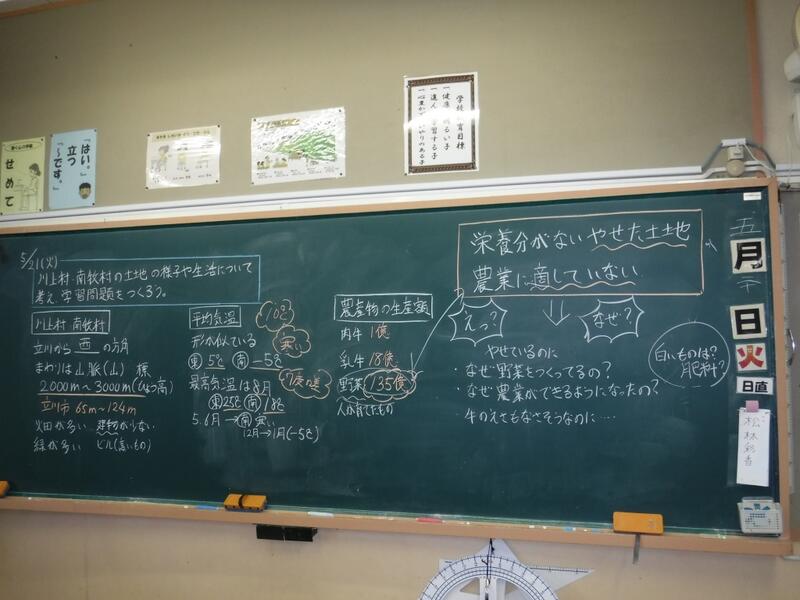 せめて
「はい。」
立つ
「~です。」
学校教育目標
一 健康で明るい子
一 進んで学習する子
一 心豊かで思いやりのある子
5/21(火)
川上村・南牧村の土地の様子や生活について
考え、学習問題をつくろう。
川上村 南牧村
立川から 西 の方角
まわりは山脈(山)
2000mへ3000m(ひょう高)
立川市 65m~124m
畑が多い 建物が少ない
緑が多い ビル(高いもの)
平均気温
10℃
形が似ている
寒い
東 5℃ 南 -5℃
最高気温は8月
7度の差
東25℃ 南18℃
5.6月→南寒い
12月→1月(-5℃)
農産物の生産額
肉牛 1億
乳牛 18億
野菜 135億
人が育てたもの
栄養分がない やせた土地
農業に適していない
えっ?
なぜ?
やせているのに
・なぜ野菜をつくってるの?
・なぜ農業ができるようになったの?
・牛のえさもなさそうなのに……
白いものは?
肥料?
五
月
日
火
日直